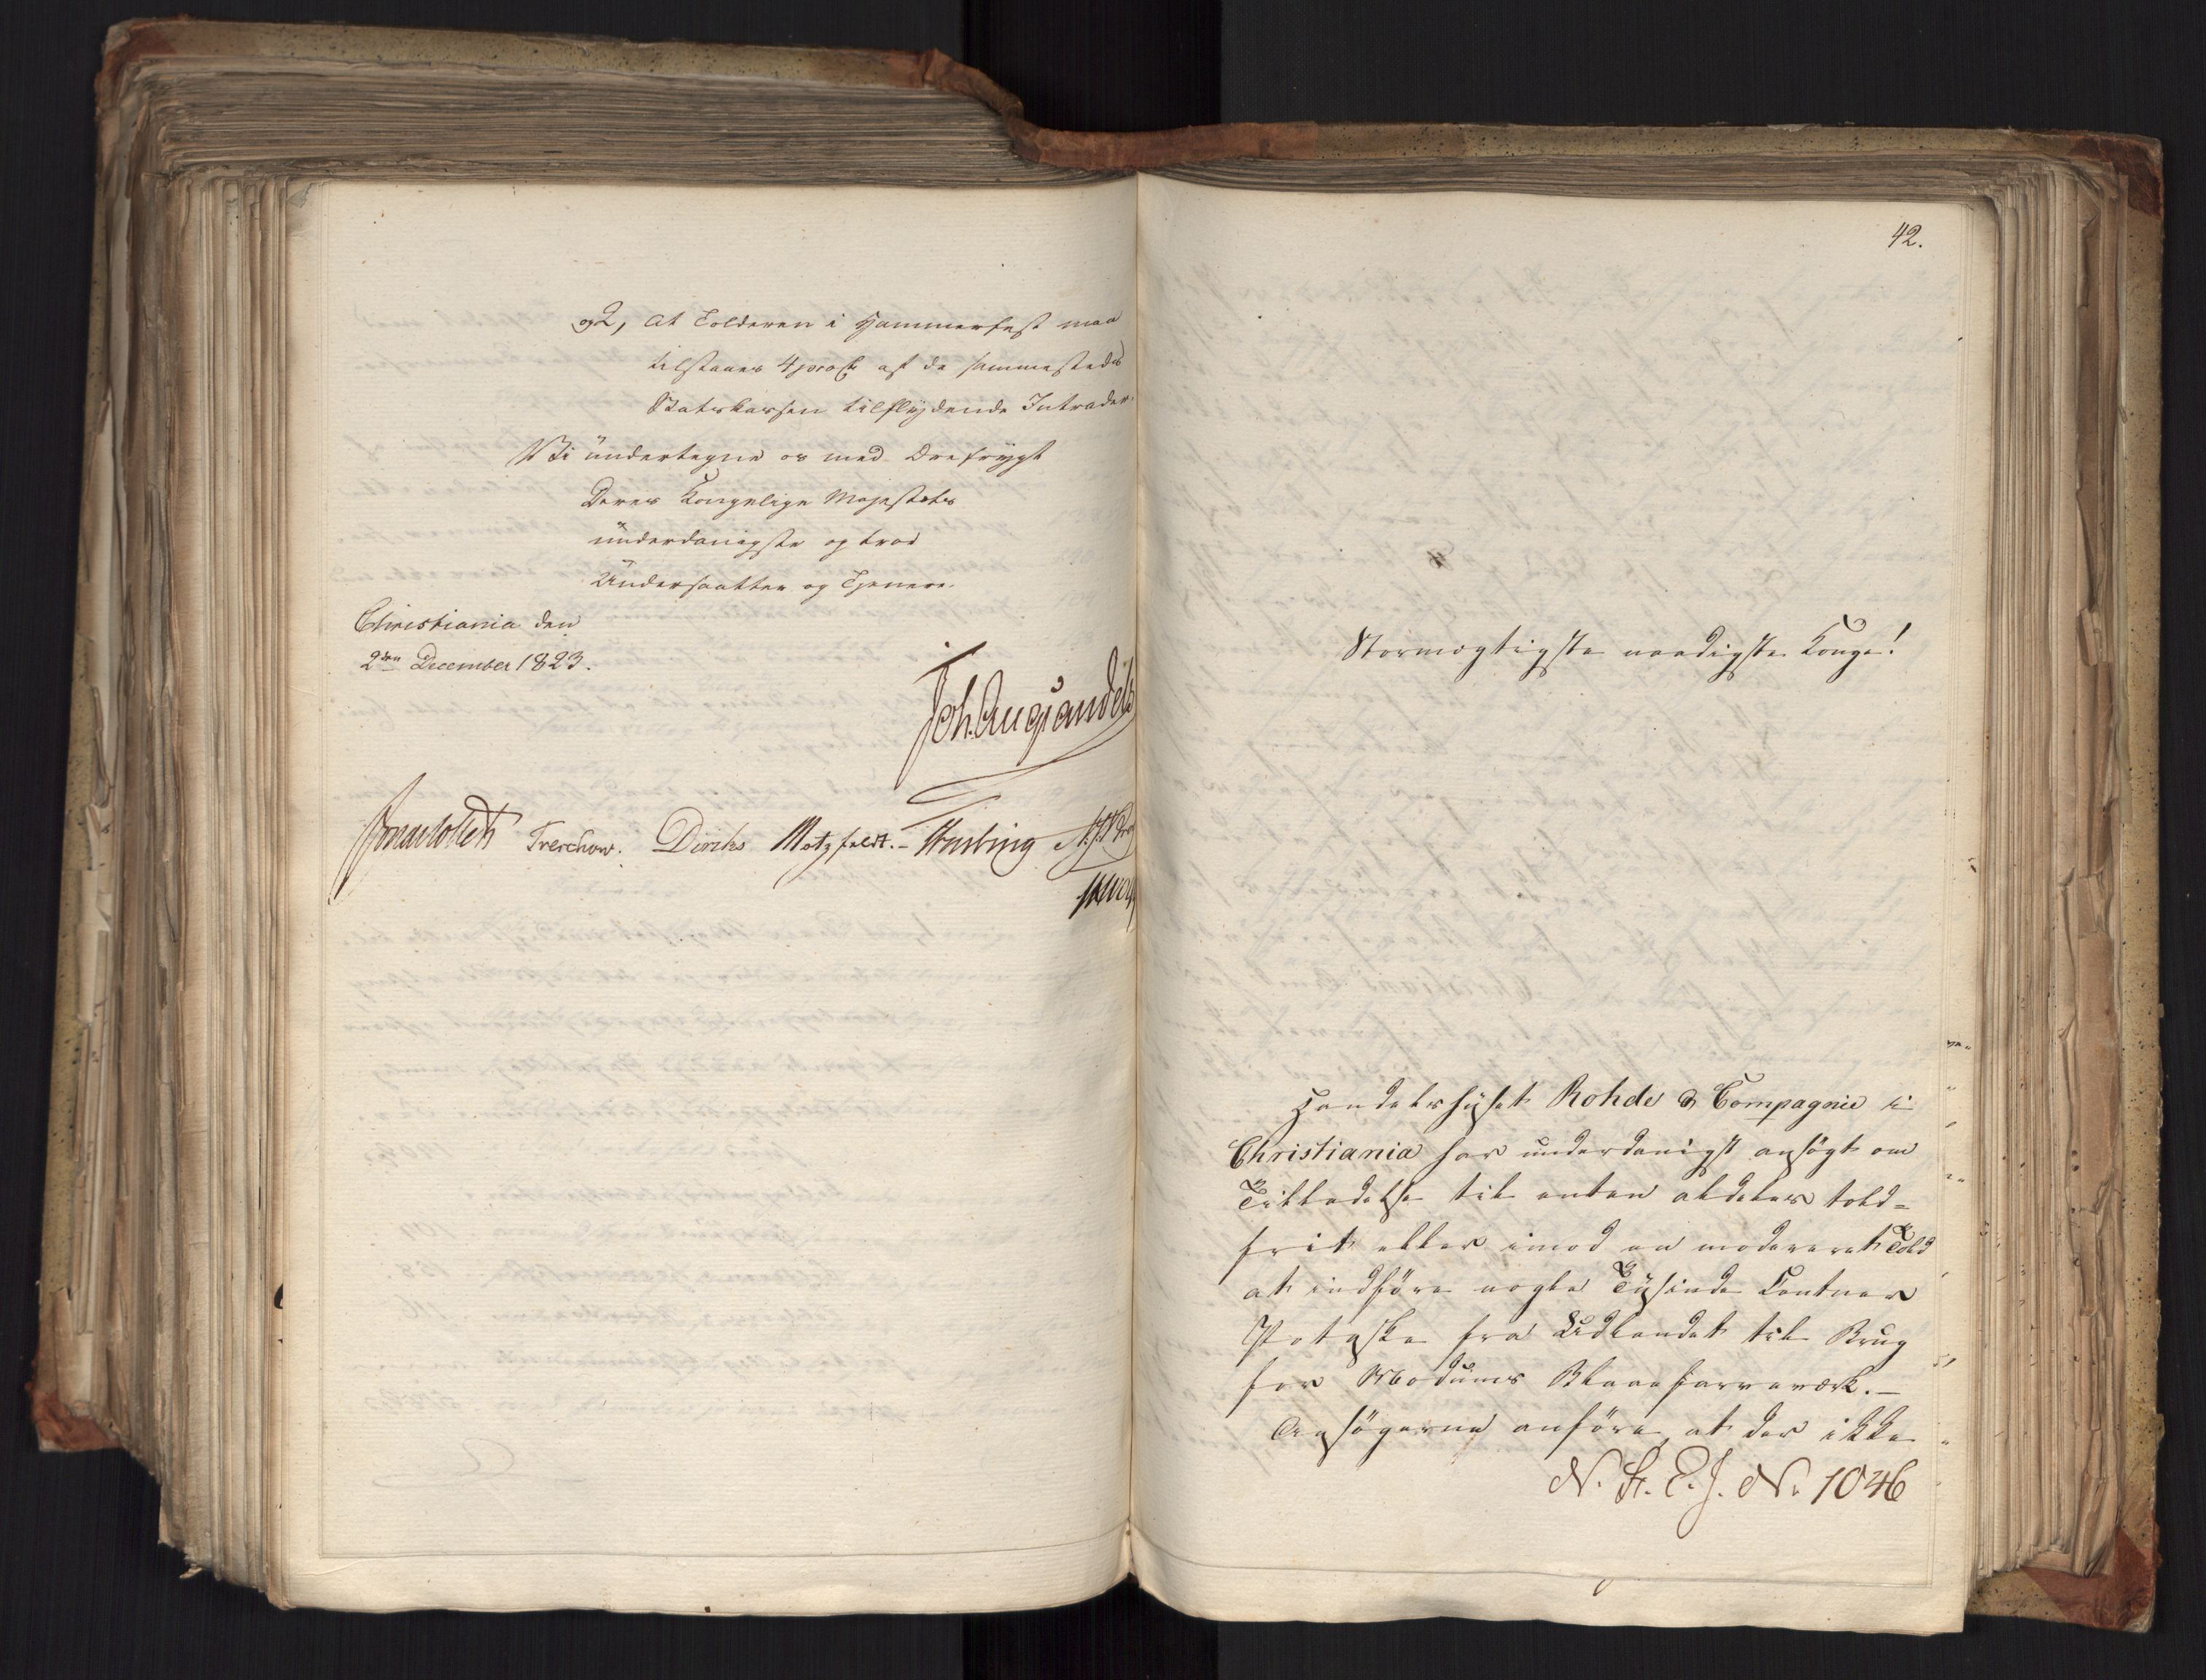 og 2, at Tolderen i Hammerfest maa
tilstaaes 4 proCt. af de sammesteds
Statskassen tilflydende Intrader.
Vi undertegne os med Ærefrygt
Deres Kongelige Majestæts
underdanigste og troe
Undersaatter og Tjenere.
Christiania den
2den December 1823.
Joh. Aug. Sandels
Treschow. Diriks Motzfeldt. Hasting
42.
Stormægtigste naadigste Konge!
Handelshuset Rohde & Compagnie i
Christiania har underdanigst ansøgt om
Tilladelse til enten aldeles told-
frit eller imod en modereret Told
at indføre nogle Tusinde Centner
Potaske fra Udlandet til Brug
for Modums Blaafarveværk.—
Ansøgerne anføre, at der ikke
N. St. E. J. No. 1046